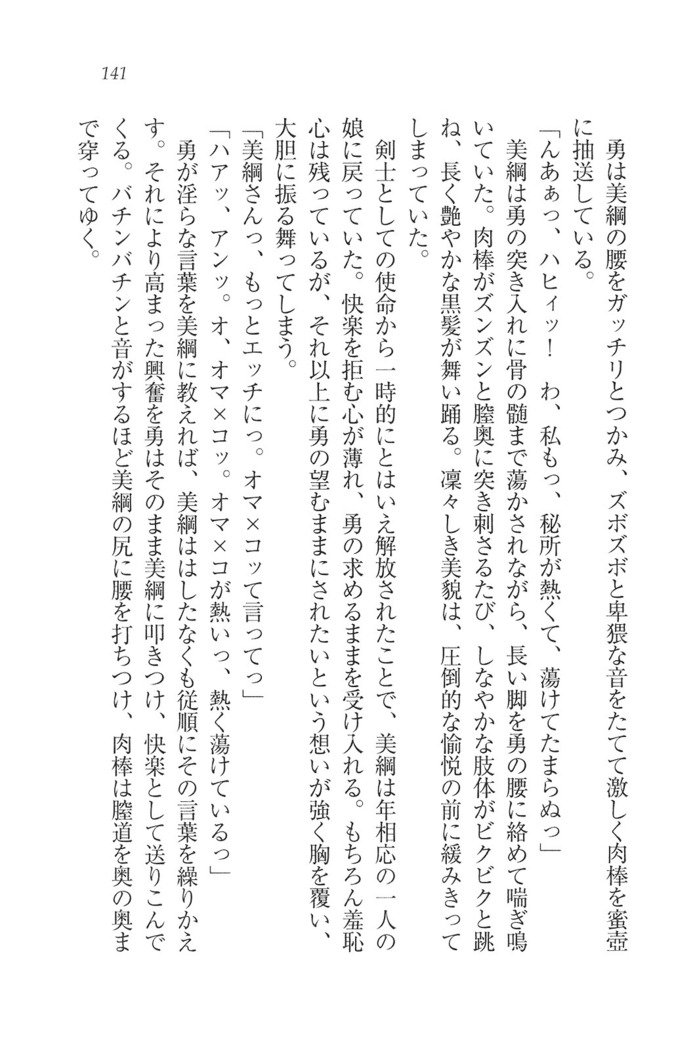 141
勇は美綱の腰をガッチリとつかみ、ズボズボと卑猥な音をたてて激しく肉棒を蜜壺
に抽送している。
「んあぁっ、ハヒィッ！　わ、私もっ、秘所が熱くて、蕩けてたまらぬっ」
美綱は勇の突き入れに骨の髄まで蕩かされながら、長い脚を勇の腰に絡めて喘ぎ鳴
いていた。肉棒がズンズンと膣奥に突き刺さるたび、しなやかな肢体がビクビクと跳
ね、長く艶やかな黒髪が舞い踊る。凛々しき美貌は、圧倒的な愉悦の前に緩みきって
しまっていた。
剣士としての使命から一時的にとはいえ解放されたことで、美綱は年相応の一人の
娘に戻っていた。快楽を拒む心が薄れ、勇の求めるままを受け入れる。もちろん羞恥
心は残っているが、それ以上に勇の望むままにされたいという想いが強く胸を覆い、
大胆に振る舞ってしまう。
「美綱さんっ、もっとエッチにっ。オマ×コッて言ってっ」
「ハアッ、アンッ。オ、オマ×コッ。オマ×コが熱いっ、熱く蕩けているっ」
勇が淫らな言葉を美綱に教えれば、美綱ははしたなくも従順にその言葉を繰りかえ
す。それにより高まった興奮を勇はそのまま美綱に叩きつけ、快楽として送りこんで
くる。バチンバチンと音がするほど美綱の尻に腰を打ちつけ、肉棒は膣道を奥の奥ま
で穿ってゆく。